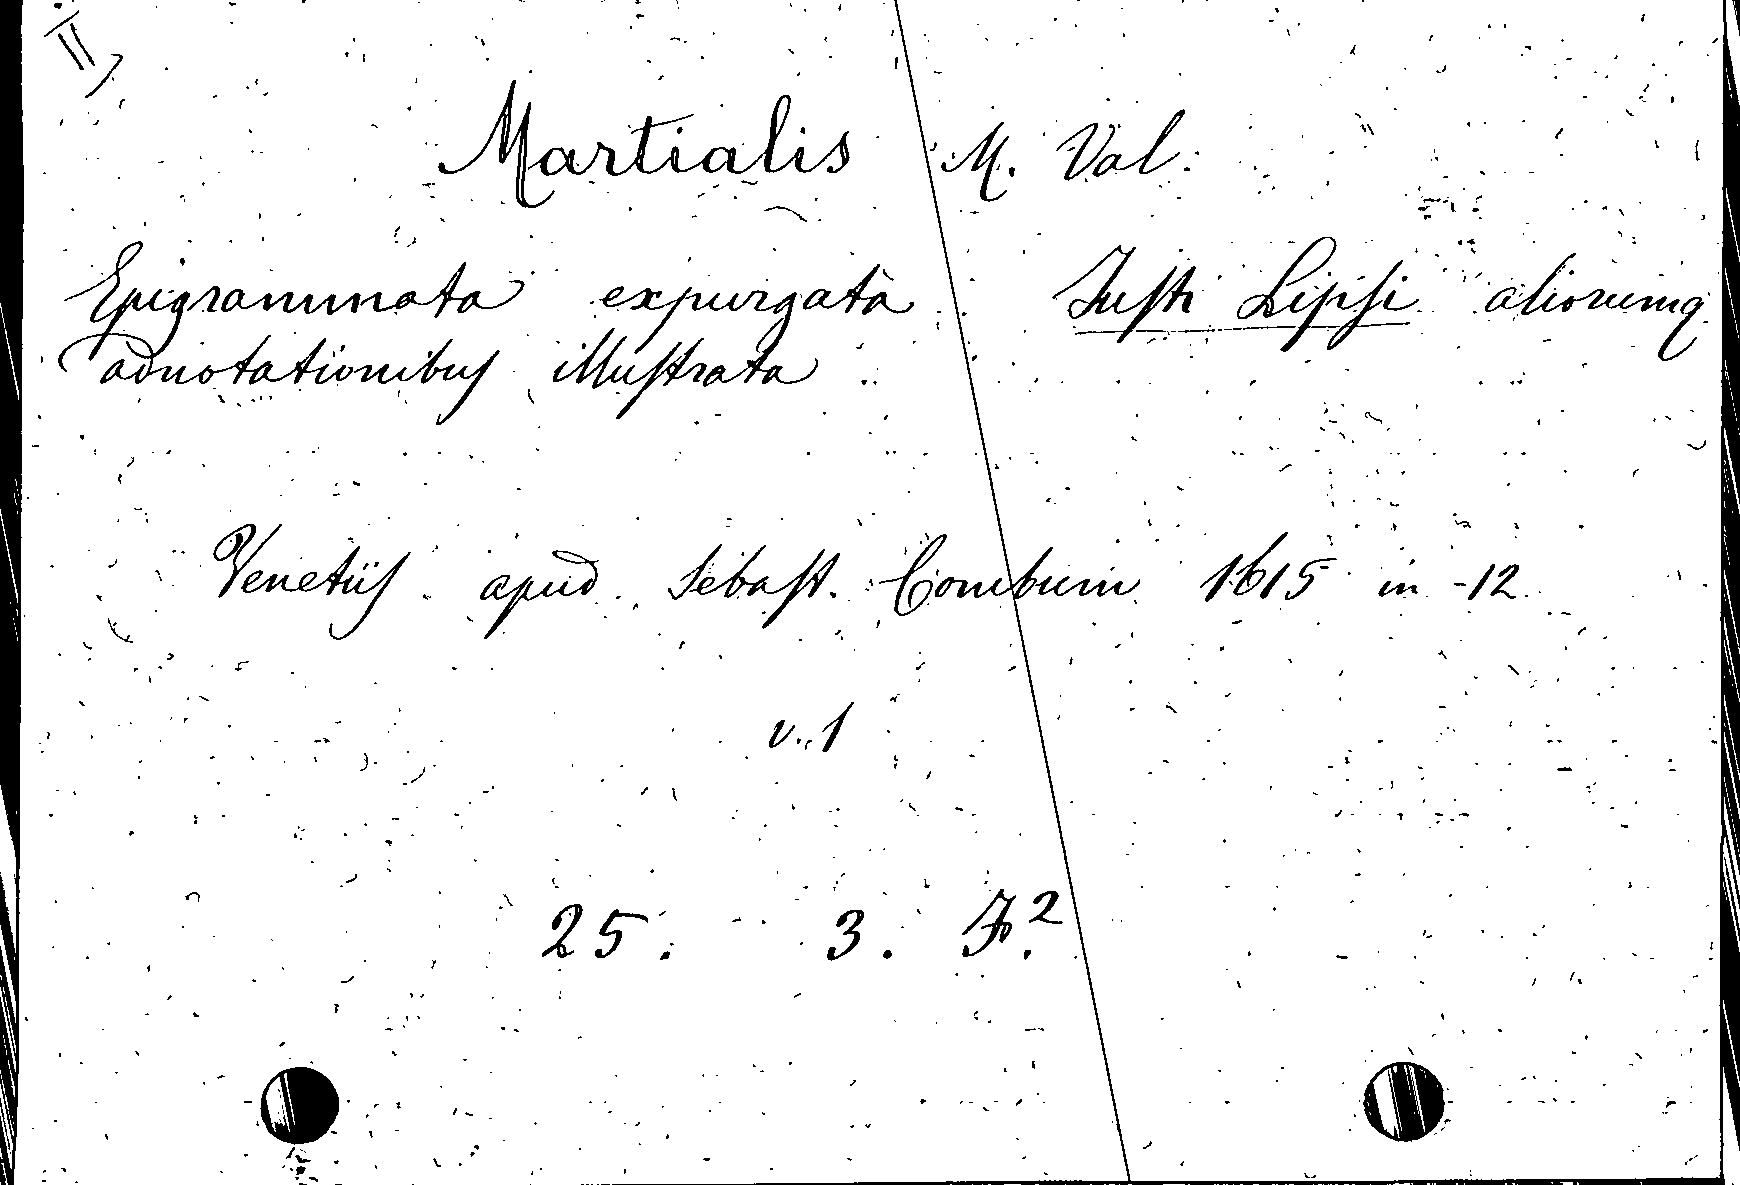 II
Martialis M. Val.
Epigrammata expurgata Justi Lipsi aliorumq
adnotationibus illustrata
Venetiis apud Sebast. Combum 1615 in -12
v. 1
25. 3. F.²